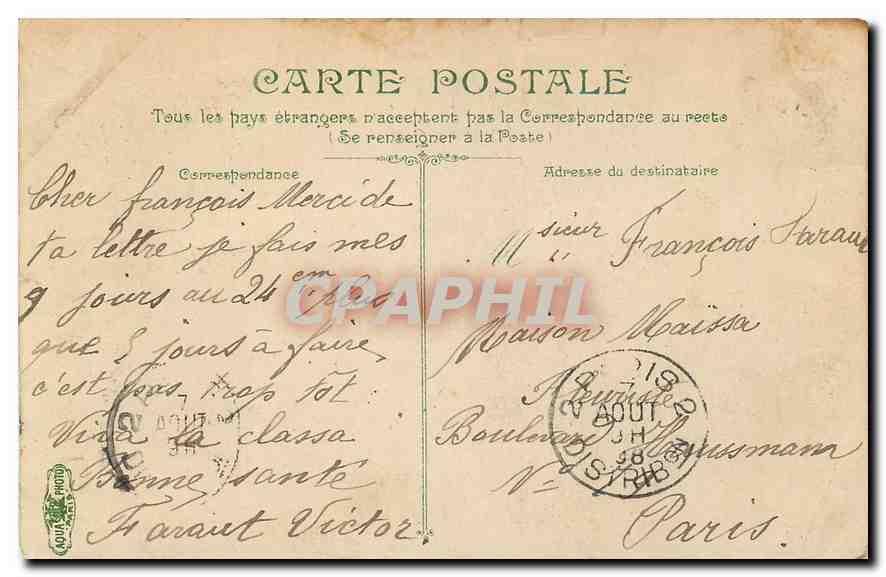 CARTE POSTALE
Tous les pays étrangers n'acceptent pas la Correspondance au recto
(Se renseigner à la Poste)
Correspondance
Cher françois Merci de
ta lettre je fais mes
9 jours au 24em plus
que 5 jours à faire
c'est pas trop tôt
Viva la classa
Bonne santé
Faraut Victor
Adresse du destinataire
Msieur François Faraut
Maison Maïssa
Fleuriste
Boulevard Haussmann
N°
Paris.
PARIS 2
7
AOUT
DISTRIB
7
AOUT
AQUA PHOTO
PARIS
CPAPHIL